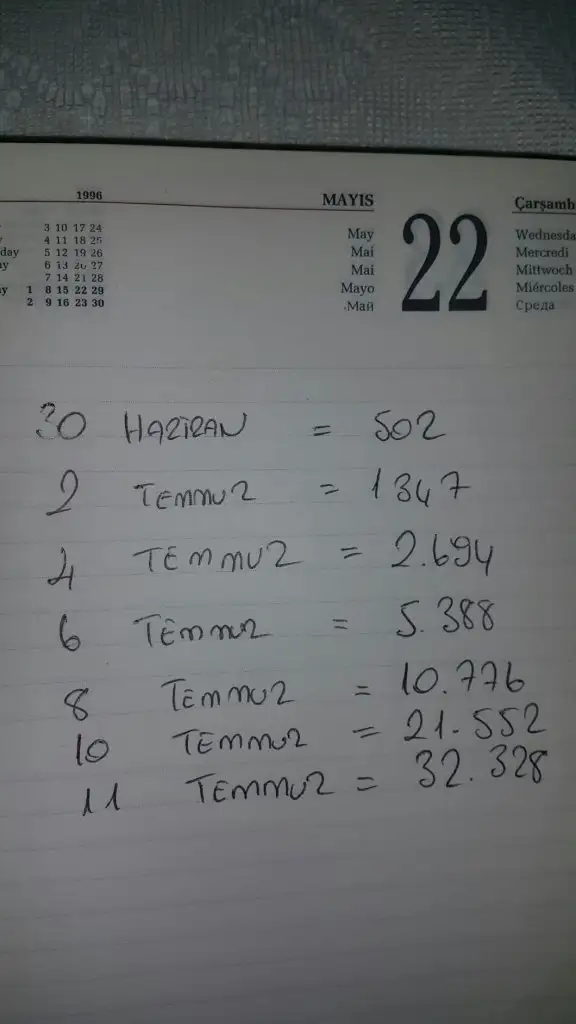 1996 MAYIS 22 Çarşamb
3 10 17 24 May Wednesda
4 11 18 25 Mai Mercredi
day 5 12 19 26 Mai Mittwoch
y 6 13 20 27 Mayo Miércoles
7 14 21 28 Май Среда
y 1 8 15 22 29
2 9 16 23 30
30 HAZİRAN = 502
2 TEMMUZ = 1347
4 TEMMUZ = 2.694
6 TEMMUZ = 5.388
8 TEMMUZ = 10.776
10 TEMMUZ = 21.552
11 TEMMUZ = 32.328